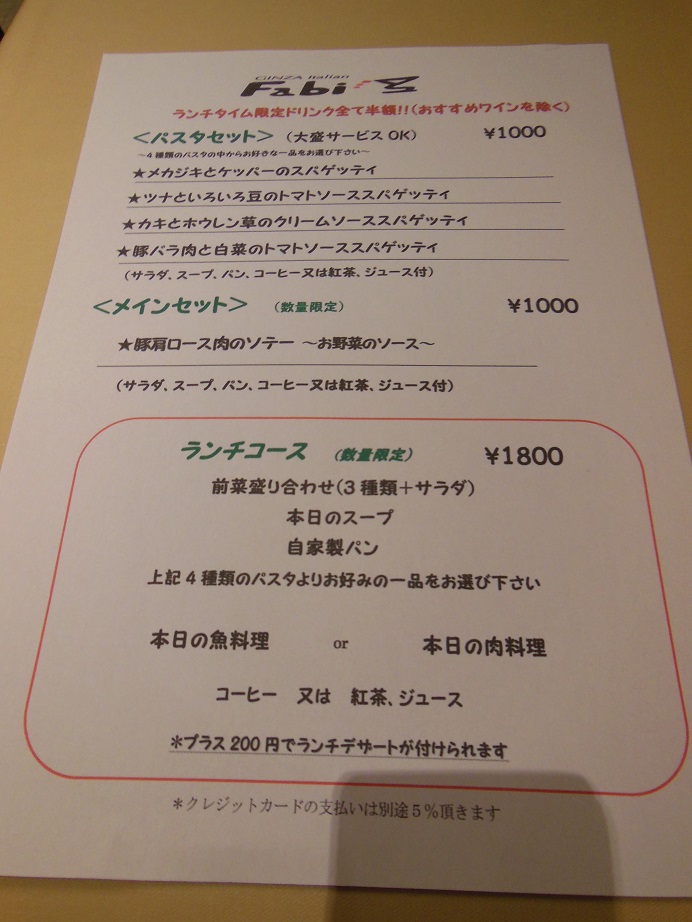 GINZA Italian
Fabi
ランチタイム限定ドリンク全て半額!!(おすすめワインを除く)
＜パスタセット＞ (大盛サービスOK) ￥1000
～4種類のパスタの中からお好きな一品をお選び下さい～
★メカジキとケッパーのスパゲッティ
★ツナといろいろ豆のトマトソーススパゲッティ
★カキとホウレン草のクリームソーススパゲッティ
★豚バラ肉と白菜のトマトソーススパゲティ
(サラダ、スープ、パン、コーヒー又は紅茶、ジュース付)
＜メインセット＞ (数量限定) ￥1000
★豚肩ロース肉のソテー ～お野菜のソース～
(サラダ、スープ、パン、コーヒー又は紅茶、ジュース付)
ランチコース (数量限定) ￥1800
前菜盛り合わせ(3種類＋サラダ)
本日のスープ
自家製パン
上記4種類のパスタよりお好みの一品をお選び下さい
本日の魚料理 or 本日の肉料理
コーヒー 又は 紅茶、ジュース
＊プラス200円でランチデザートが付けられます
＊クレジットカードの支払いは別途5％頂きます